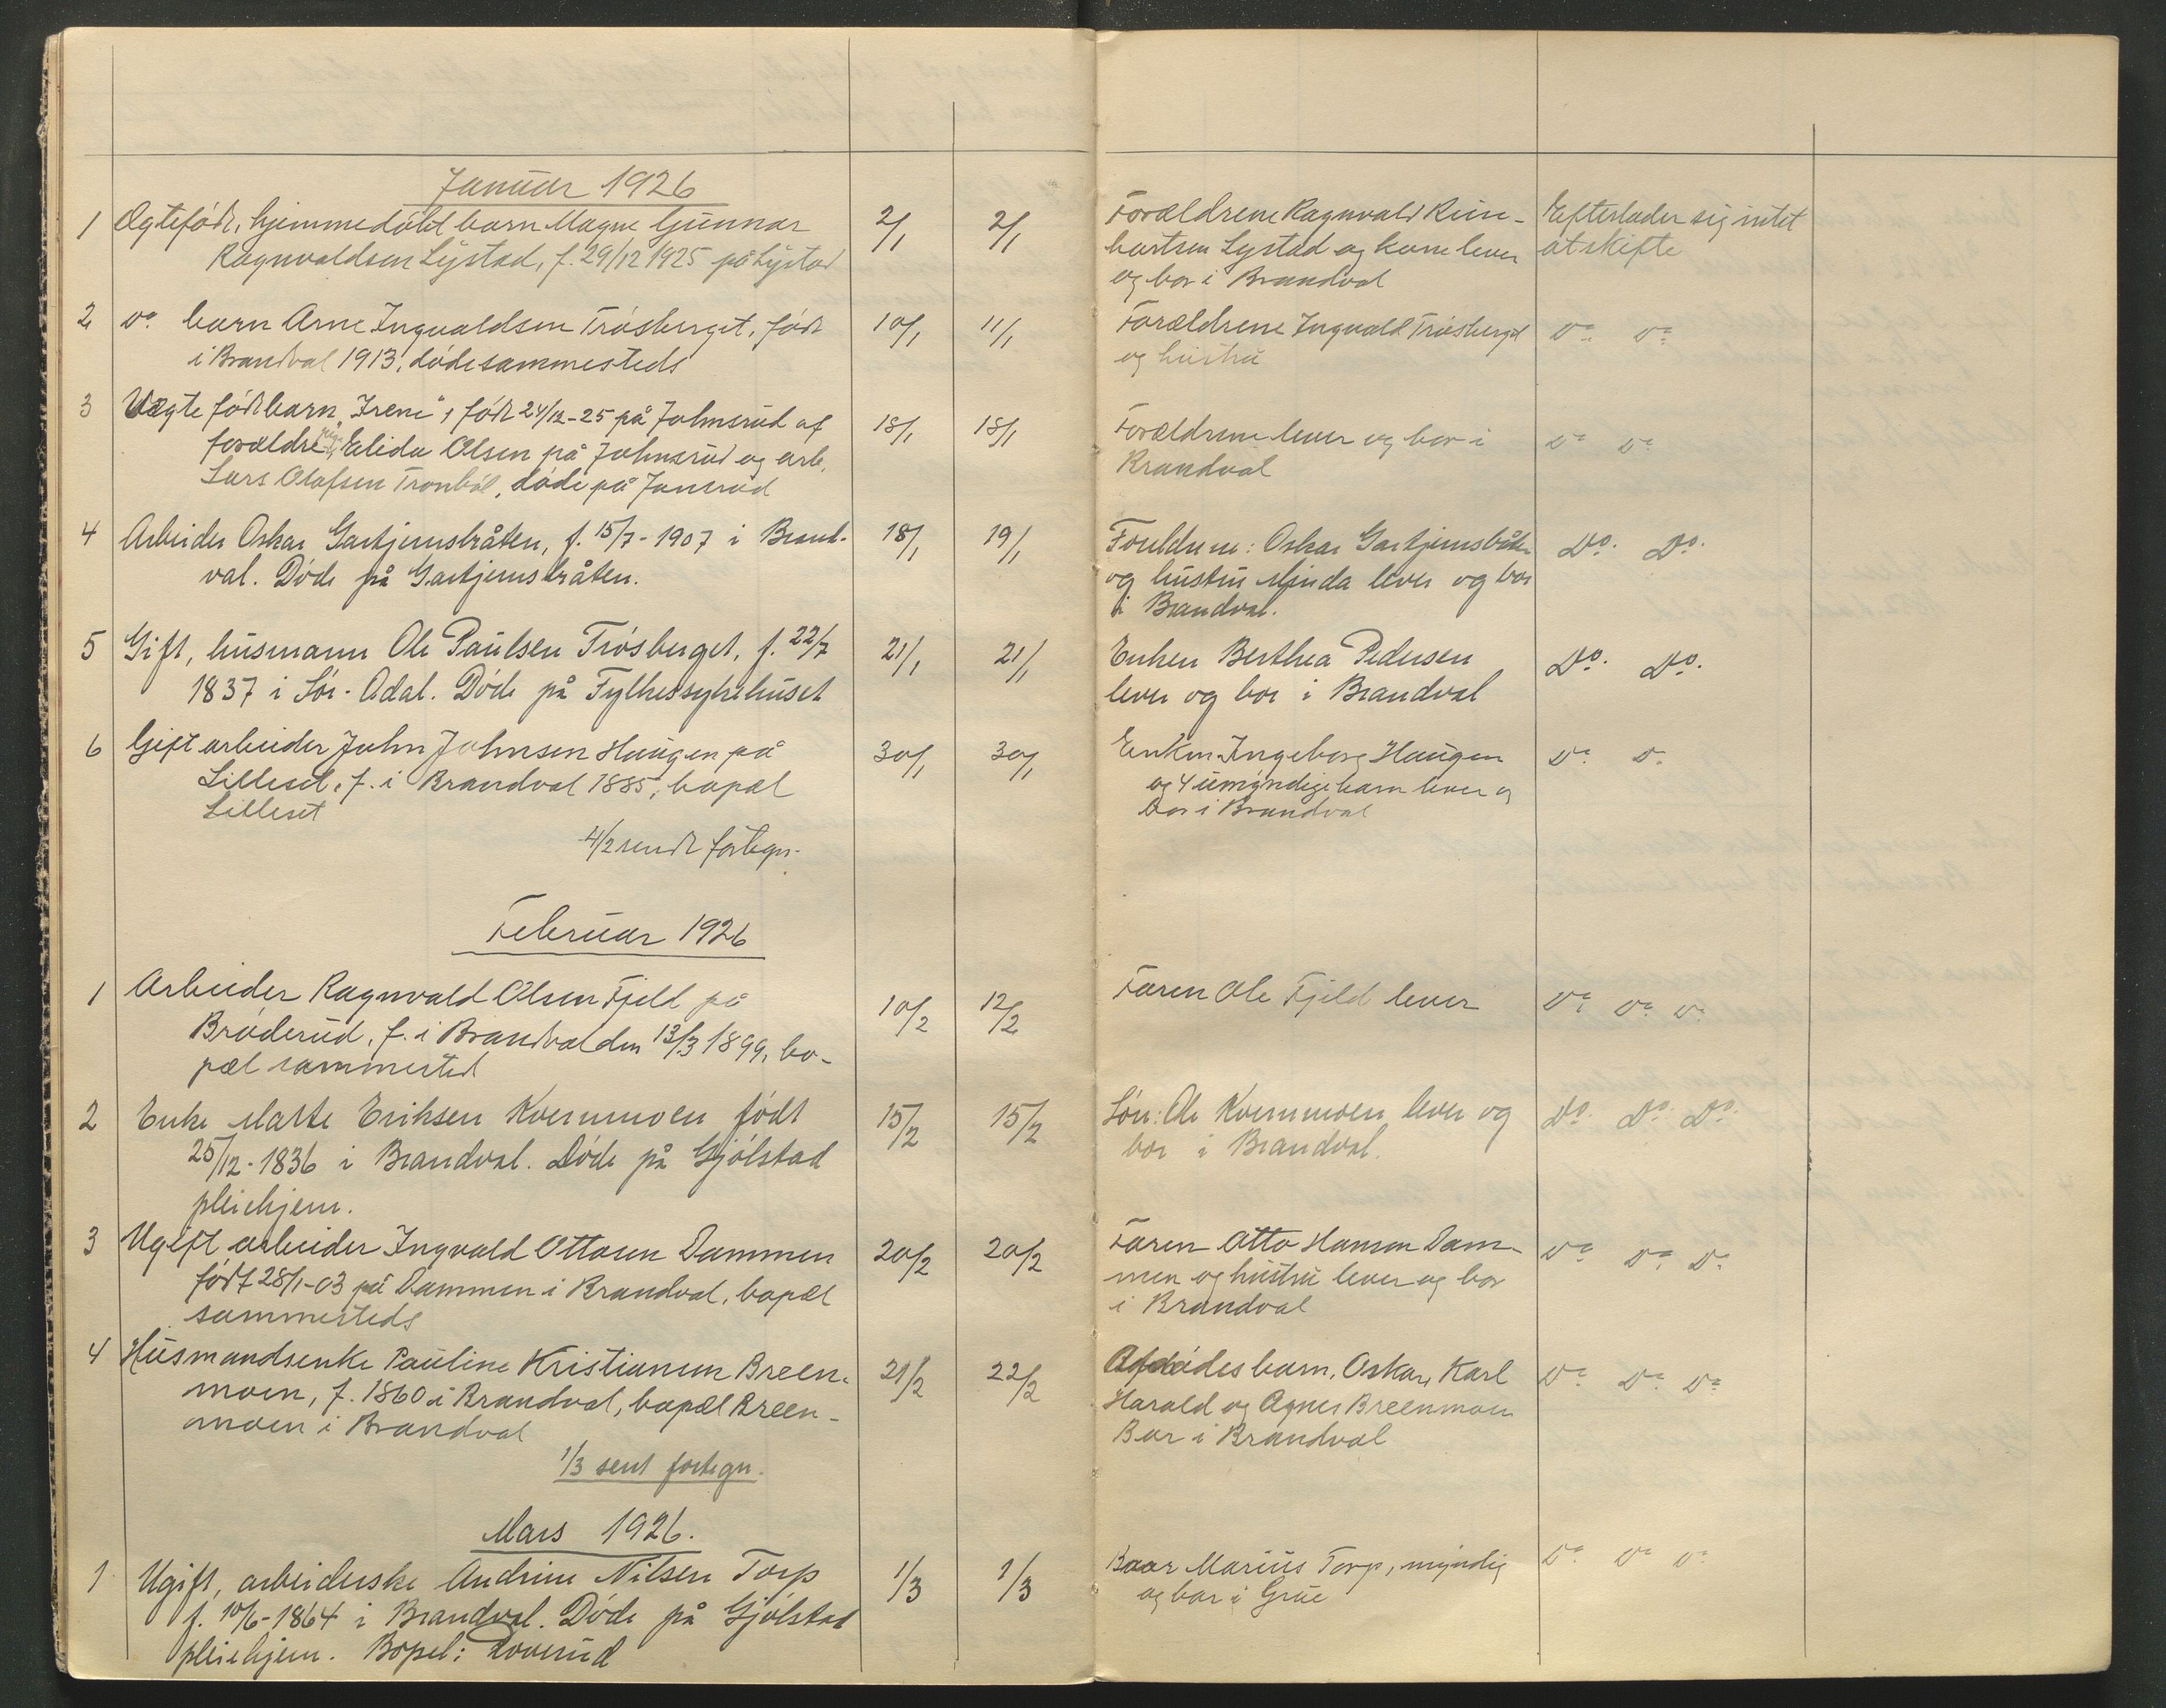 Januar 1926
1 Ægtefödt, hjemmedöbt barn Magne Gunnar 2/1 2/1 Forældrene Ragnvald Rein- Efterlader sig intet
Ragnvaldsen Lystad, f. 29/12 1925 på Lystad hartsen Lystad og kone lever at skifte
og bor i Brandval
2 Do barn Arne Ingvaldsen Trösberget, födt 10/1 11/1 Forældrene Ingvald Trösberget Do Do
i Brandval 1913, döde sammesteds og hustru
3 Uægte födt barn "Irene", födt 24/12-25 på Johnsrud af 18/1 18/1 Forældrene lever og bor i Do Do
forældre pige Elida Olsen på Johnsrud og arb. Brandval
Lars Olafsen Tronböl, döde på Jonsrud
4 Arbeider Oskar Gartjernsbråten, f. 15/7-1907 i Brand- 18/1 19/1 Foreldrene: Oskar Gartjernsbråten Do. Do.
val. Döde på Gartjernsbråten. og hustru Minda lever og bor
i Brandval.
5 Gift, husmann Ole Paulsen Trösberget, f. 22/7 21/1 21/1 Enken Berthea Pedersen Do. Do.
1837 i Sör-Odal. Döde på Fylkessykehuset lever og bor i Brandval
6 Gift arbeider John Johnsen Haugen på 30/1 30/1 Enken Ingeborg Haugen Do D.
Lilleset, f. i Brandval 1885, bopæl og 4 umyndige barn lever og
Lilleset bor i Brandval
4/2 sendt fortegn.
Februar 1926
1 Arbeider Ragnvald Olsen Fjeld på 10/2 12/2 Faren Ole Fjeld lever Do Do Do
Bröderud, f. i Brandval den 13/3 1899, bo-
pæl sammested
2 Enke Marte Eriksen Kvernmoen födt 15/2 15/2 Sön: Ole Kvernmoen lever og Do. Do. Do.
25/12-1836 i Brandval. Döde på Gjölstad bor i Brandval.
pleiehjem.
3 Ugift arbeider Ingvald Ottosen Dammen 20/2 20/2 Faren Otto Hansen Dam- Do Do Do
födt 28/1-03 på Dammen i Brandval, bopæl men og hustru lever og bor
sammesteds i Brandval
4 Husmandsenke Pauline Kristiansen Breen- 21/2 22/2 Afdödes barn, Oskar, Karl Do Do Do
moen, f. 1860 i Brandval, bopæl Breen- Harald og Agnes Breenmoen
moen i Brandval Bor i Brandval
1/3 sent fortegn.
Mars 1926.
1 Ugift, arbeiderske Andrine Nilsen Torp 1/3 1/3 Bror Marius Torp, myndig Do Do Do
f. 10/6-1864 i Brandval. Döde på Gjölstad og bor i Grue
pleiehjem. Bopel: Roverud